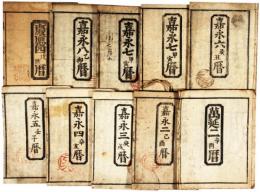 嘉永六癸丑暦
嘉永七甲寅暦
嘉永七甲寅暦
嘉永八乙卯暦
暦
萬延二辛酉暦
嘉永二己酉暦
嘉永三庚戌暦
嘉永四辛亥暦
嘉永五壬子暦